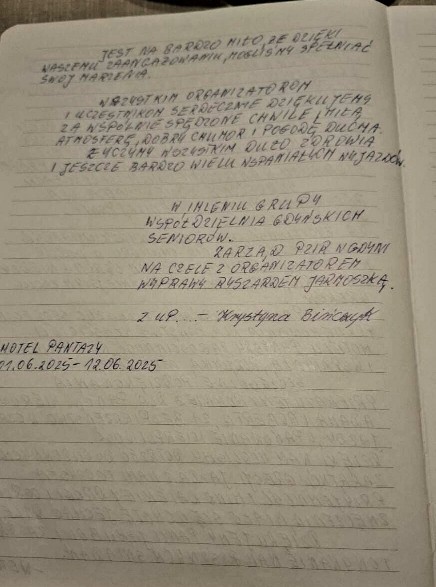 JEST NA BARDZO MIŁO, ŻE DZIĘKI
WASZEMU ZAANGAŻOWANIU, MOGLIŚMY SPEŁNIAĆ
SWOJ MARZENIA.
WSZYSTKIM ORGANIZATOROM
I UCZESTNIKOM SERDECZNIE DZIĘKUJEMY
ZA WSPÓLNIE SPĘDZONE CHWILE, MIŁĄ
ATMOSFERĘ, DOBRY CHUMOR I POGODĘ DUCHA.
ŻYCZYMY WSZYSTKIM DUŻO ZDROWIA
I JESZCZE BARDZO WIELU WSPANIAŁYCH WYJAZDÓW.
W IMIENIU GRUPY
WSPÓŁDZIELNIA GDYŃSKICH
SENIORÓW.
ZARZĄD PZIR W GDYNI
NA CZELE Z ORGANIZATOREM
WYPRAWY RYSZARDEM JARMOSZKĄ.
Z UP. .. - Krystyna Bińczyk
HOTEL PANTAZY
01.06.2025 - 12.06.2025